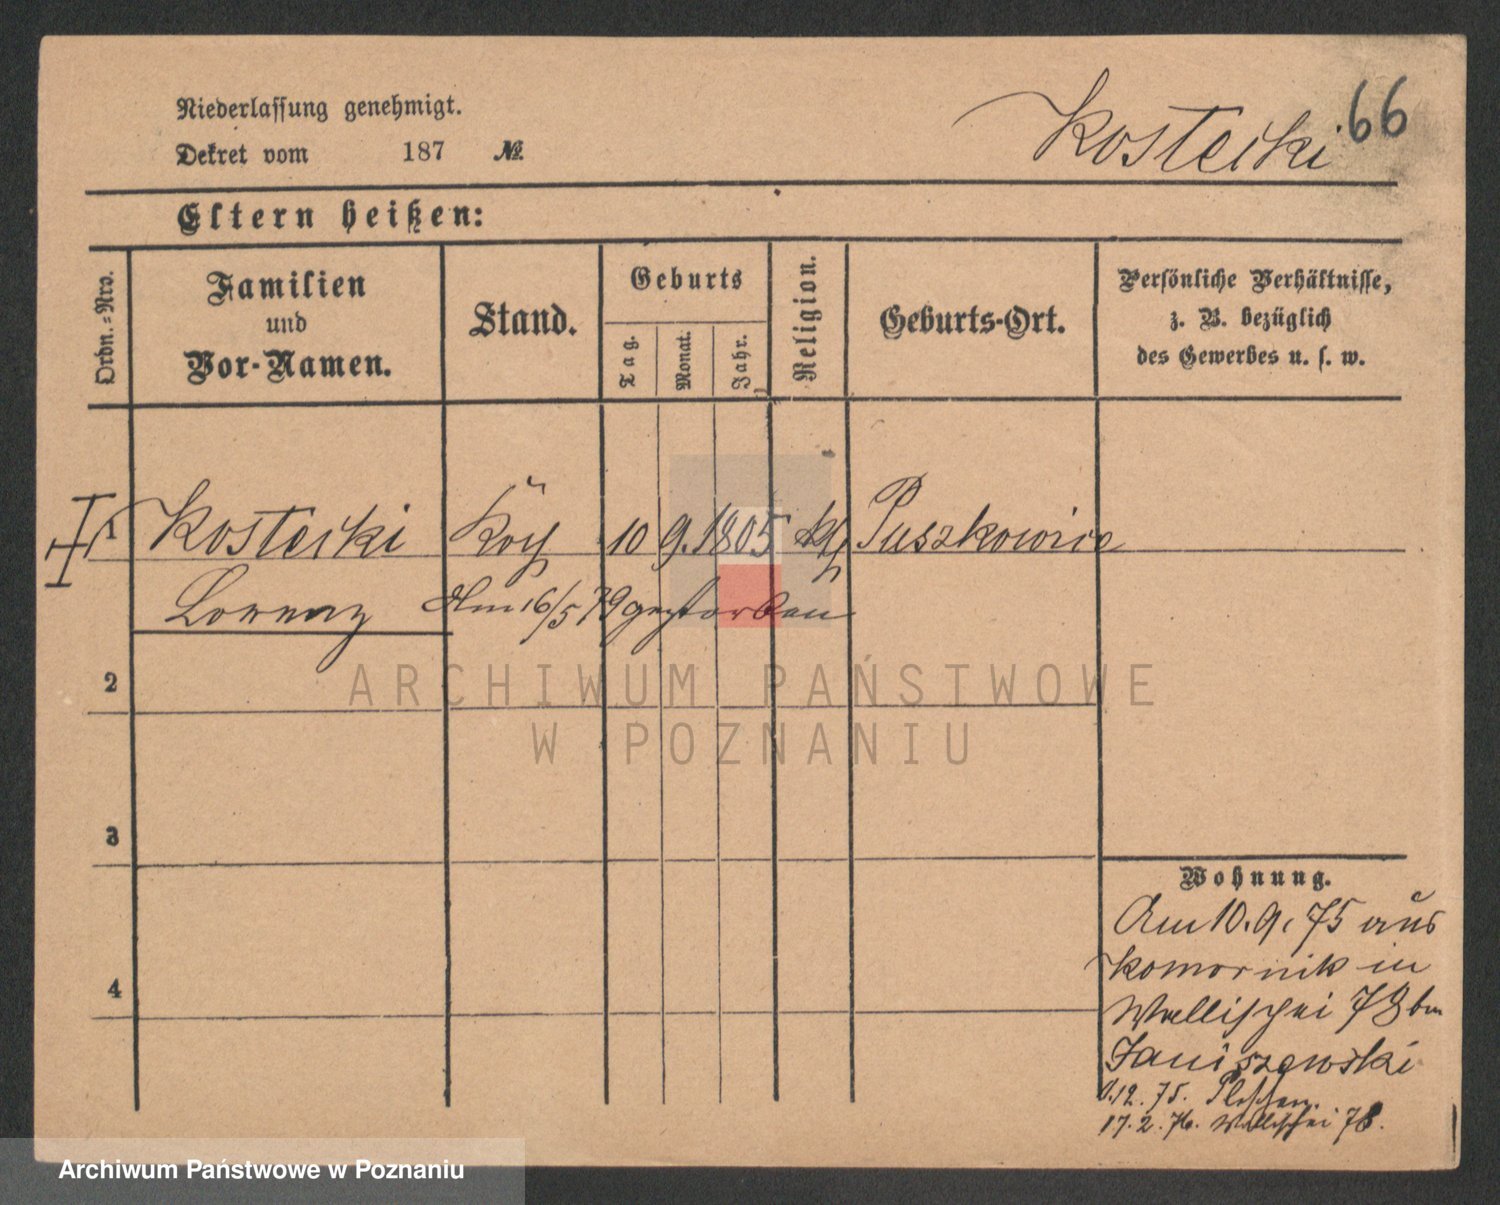 Niederlassung genehmigt.
Dekret vom 187 №
Kostecki
66
Eltern heißen:
Ordn.-Nro.
Familien
und
Vor-Namen.
Stand.
Geburts
Tag.
Monat.
Jahr.
Religion.
Geburts-Ort.
Persönliche Verhältnisse,
z. B. bezüglich
des Gewerbes u. s. w.
1 Kostecki Koch 10 9. 1805 kth Puszkowice
Lorenz Am 16/5 79 gestorben
2
3
4
Wohnung.
Am 10.9.75 aus
Komornik in
Wallischei 78 bm
Janiszewski
1.12.75. Pleschen.
17.2.76. Wallischei 78.
ARCHIWUM PAŃSTWOWE
W POZNANIU
Archiwum Państwowe w Poznaniu